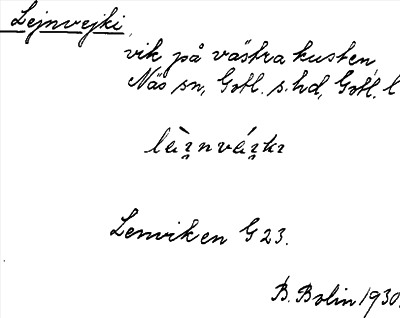 Lejnvejki,
vik på västra kusten,
Näs sn, Gotl. s. hd, Gotl. l
Lenviken G 23.
B. Bolin 1930.